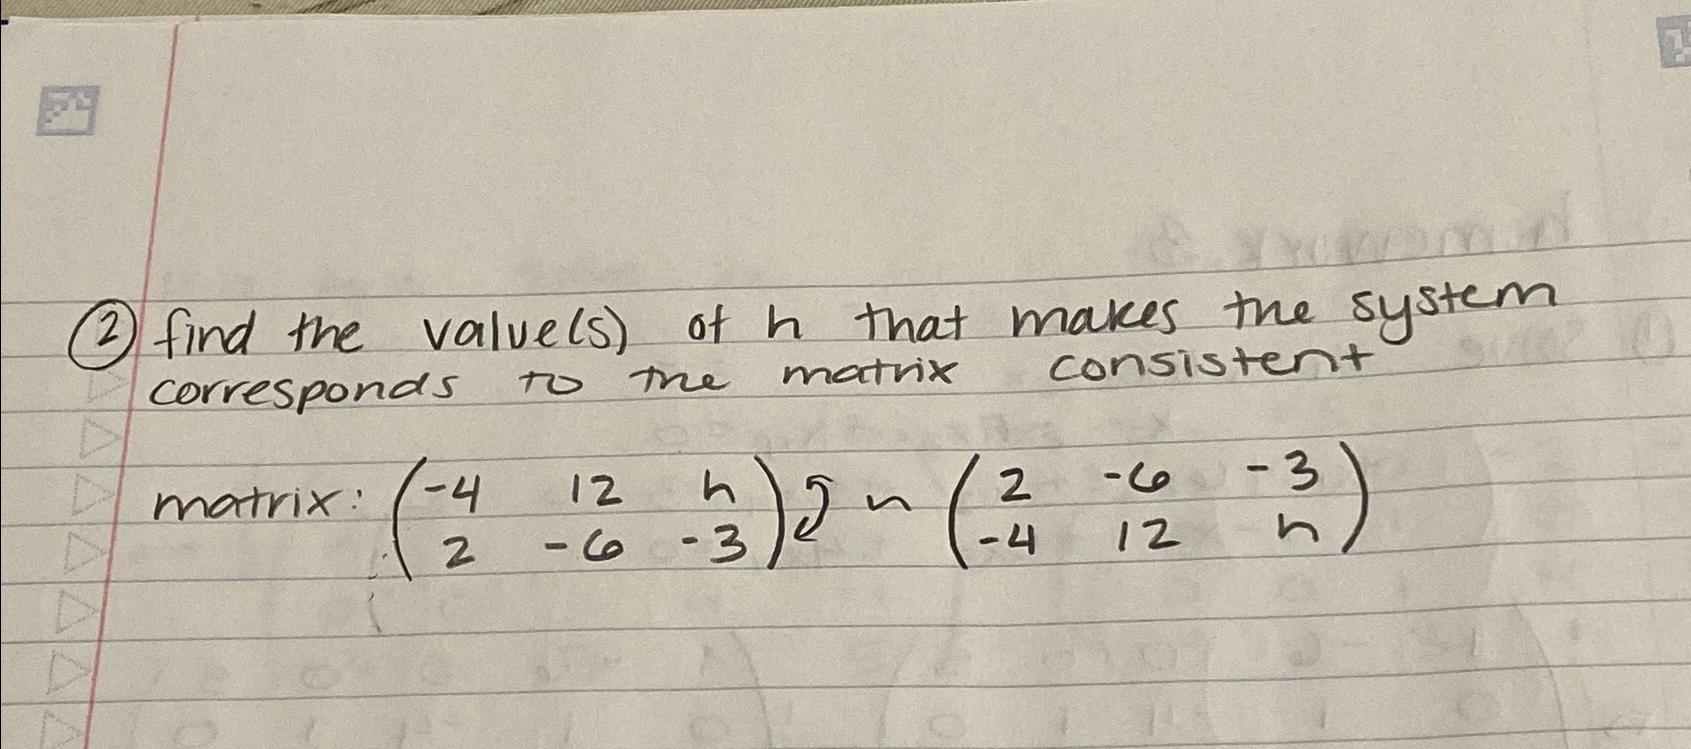 ② find the value(s) of h that makes the system
corresponds to the matrix consistent
matrix: (-4 12 h) ~ (2 -6 -3)
(2 -6 -3) (-4 12 h)